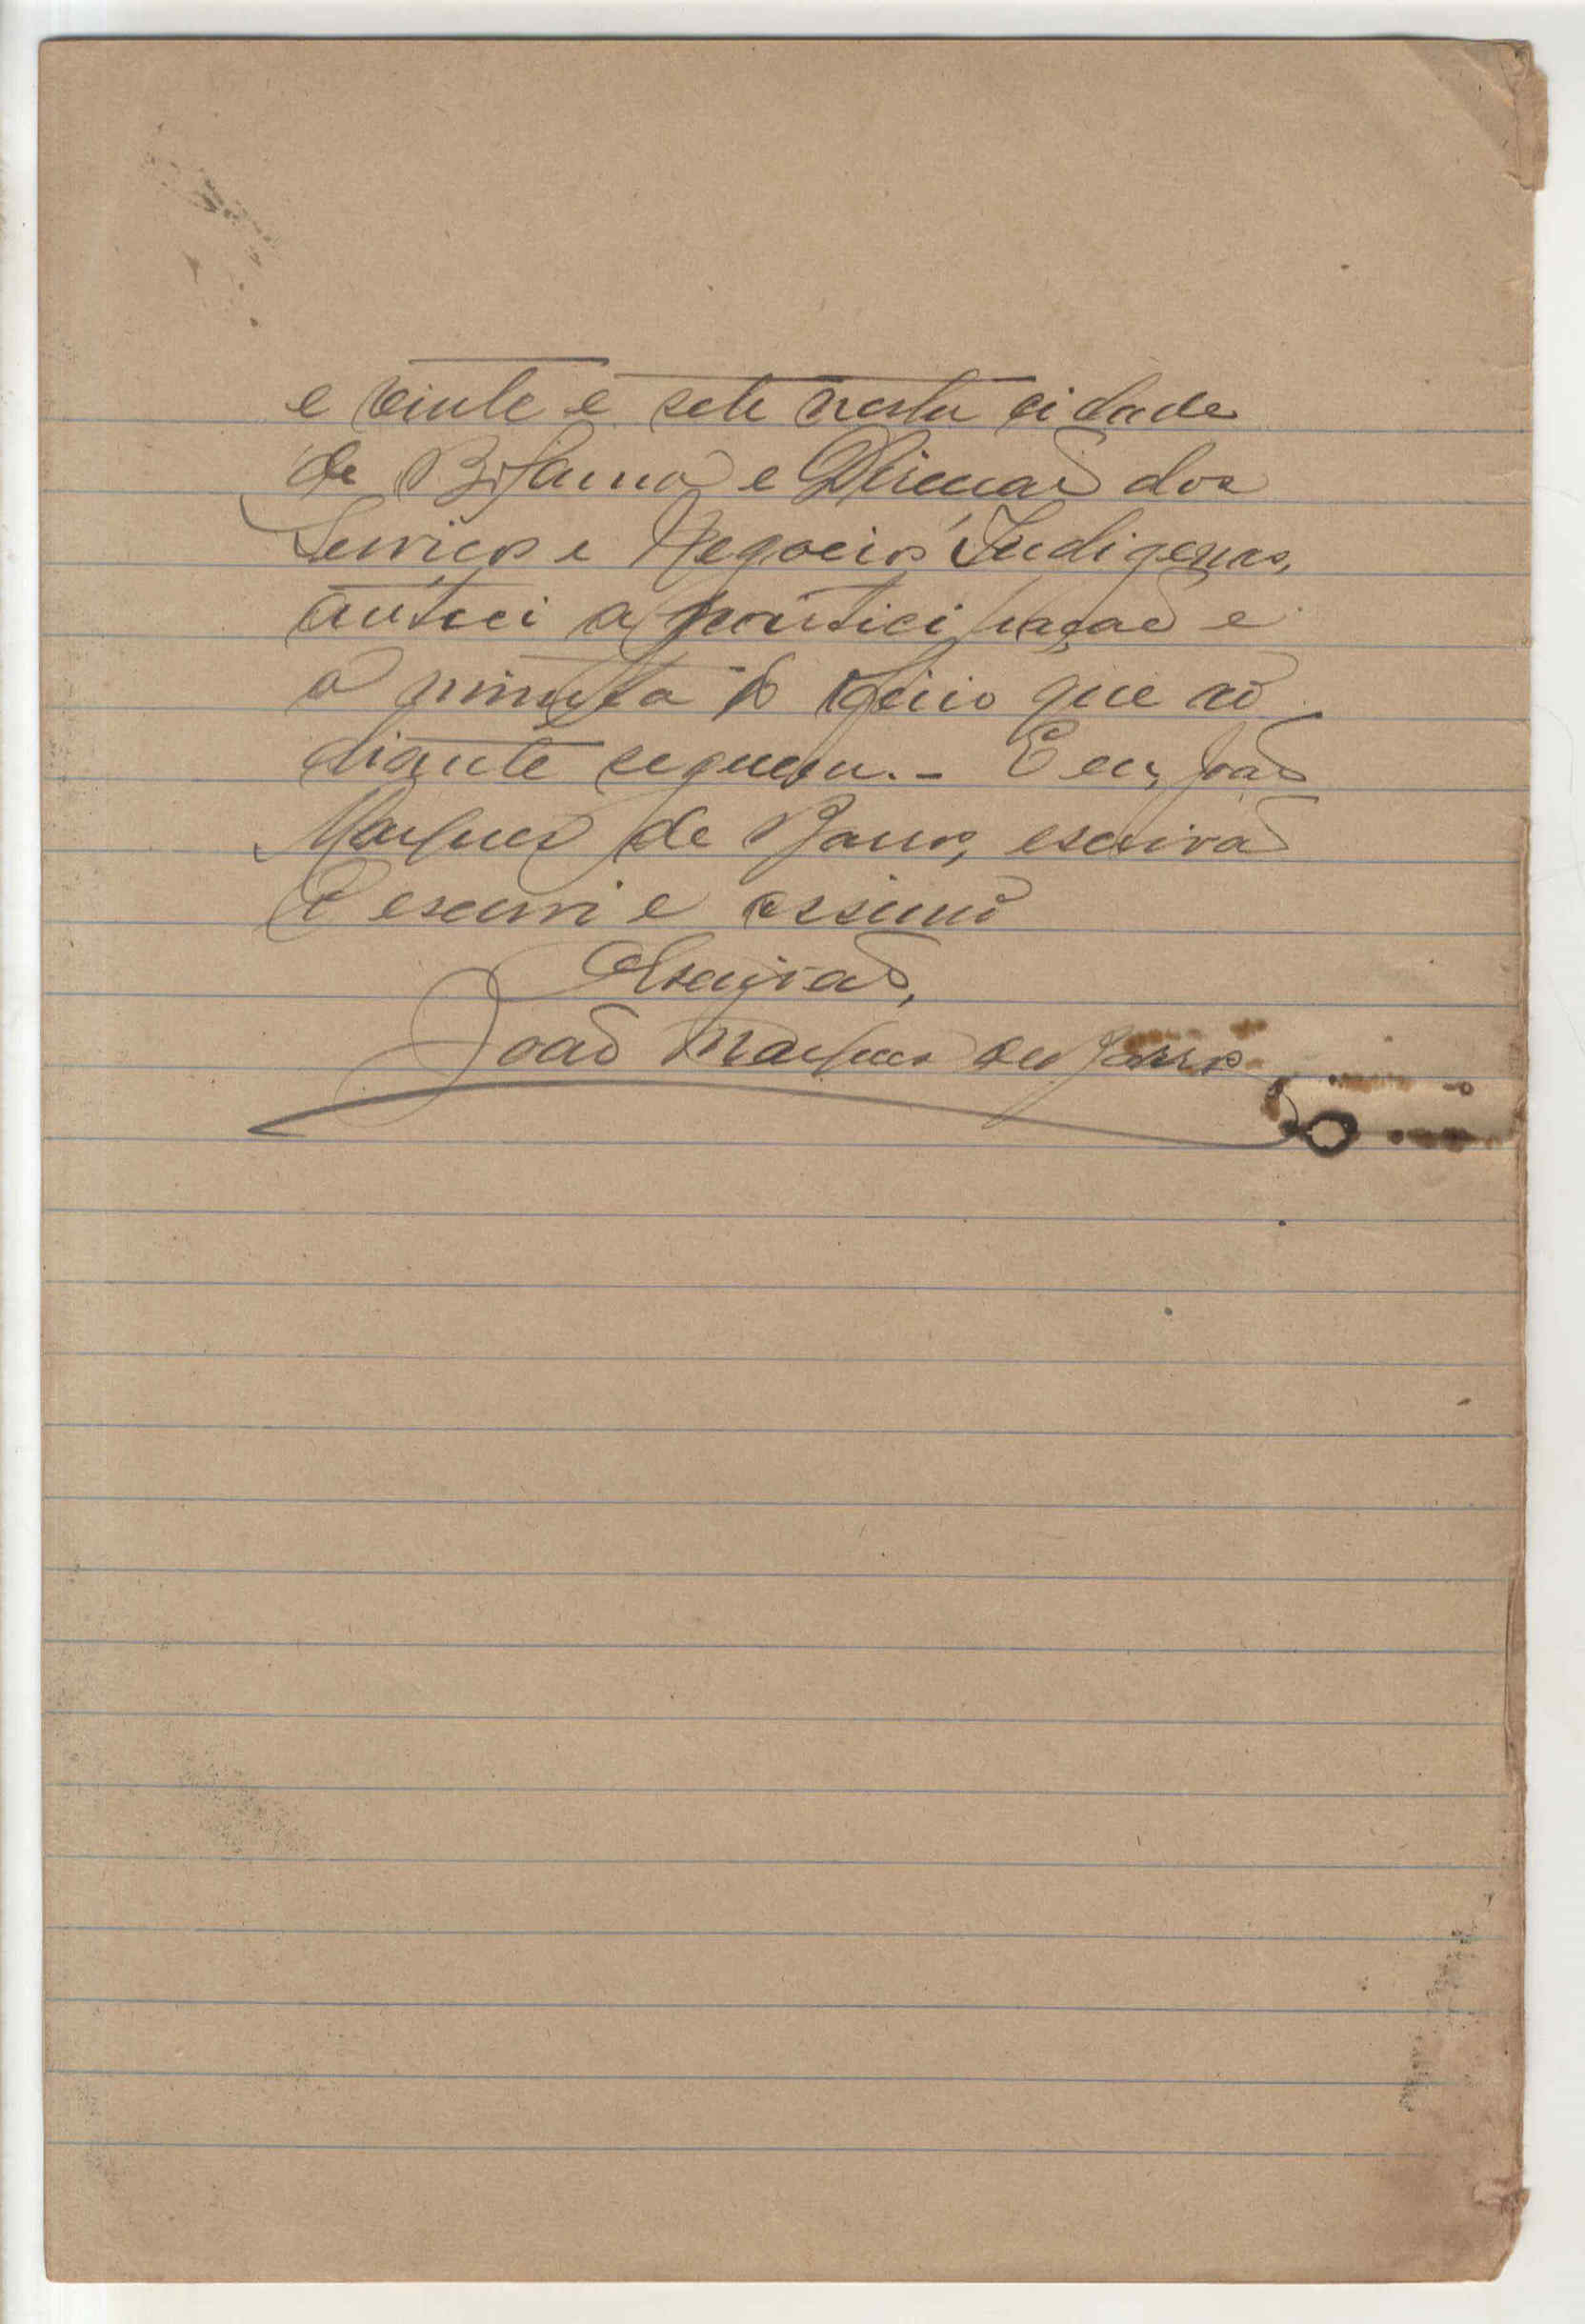 e vinte e sete nesta cidade
de Bolama e Direcção dos
Serviços e Negocios Indigenas,
autuei a participação e
a minuta do oficio que ao
diante seguem. - E eu, João
Marques de Barros, escrivão
o escrevi e assino
O Escrivão,
João Marques de Barros